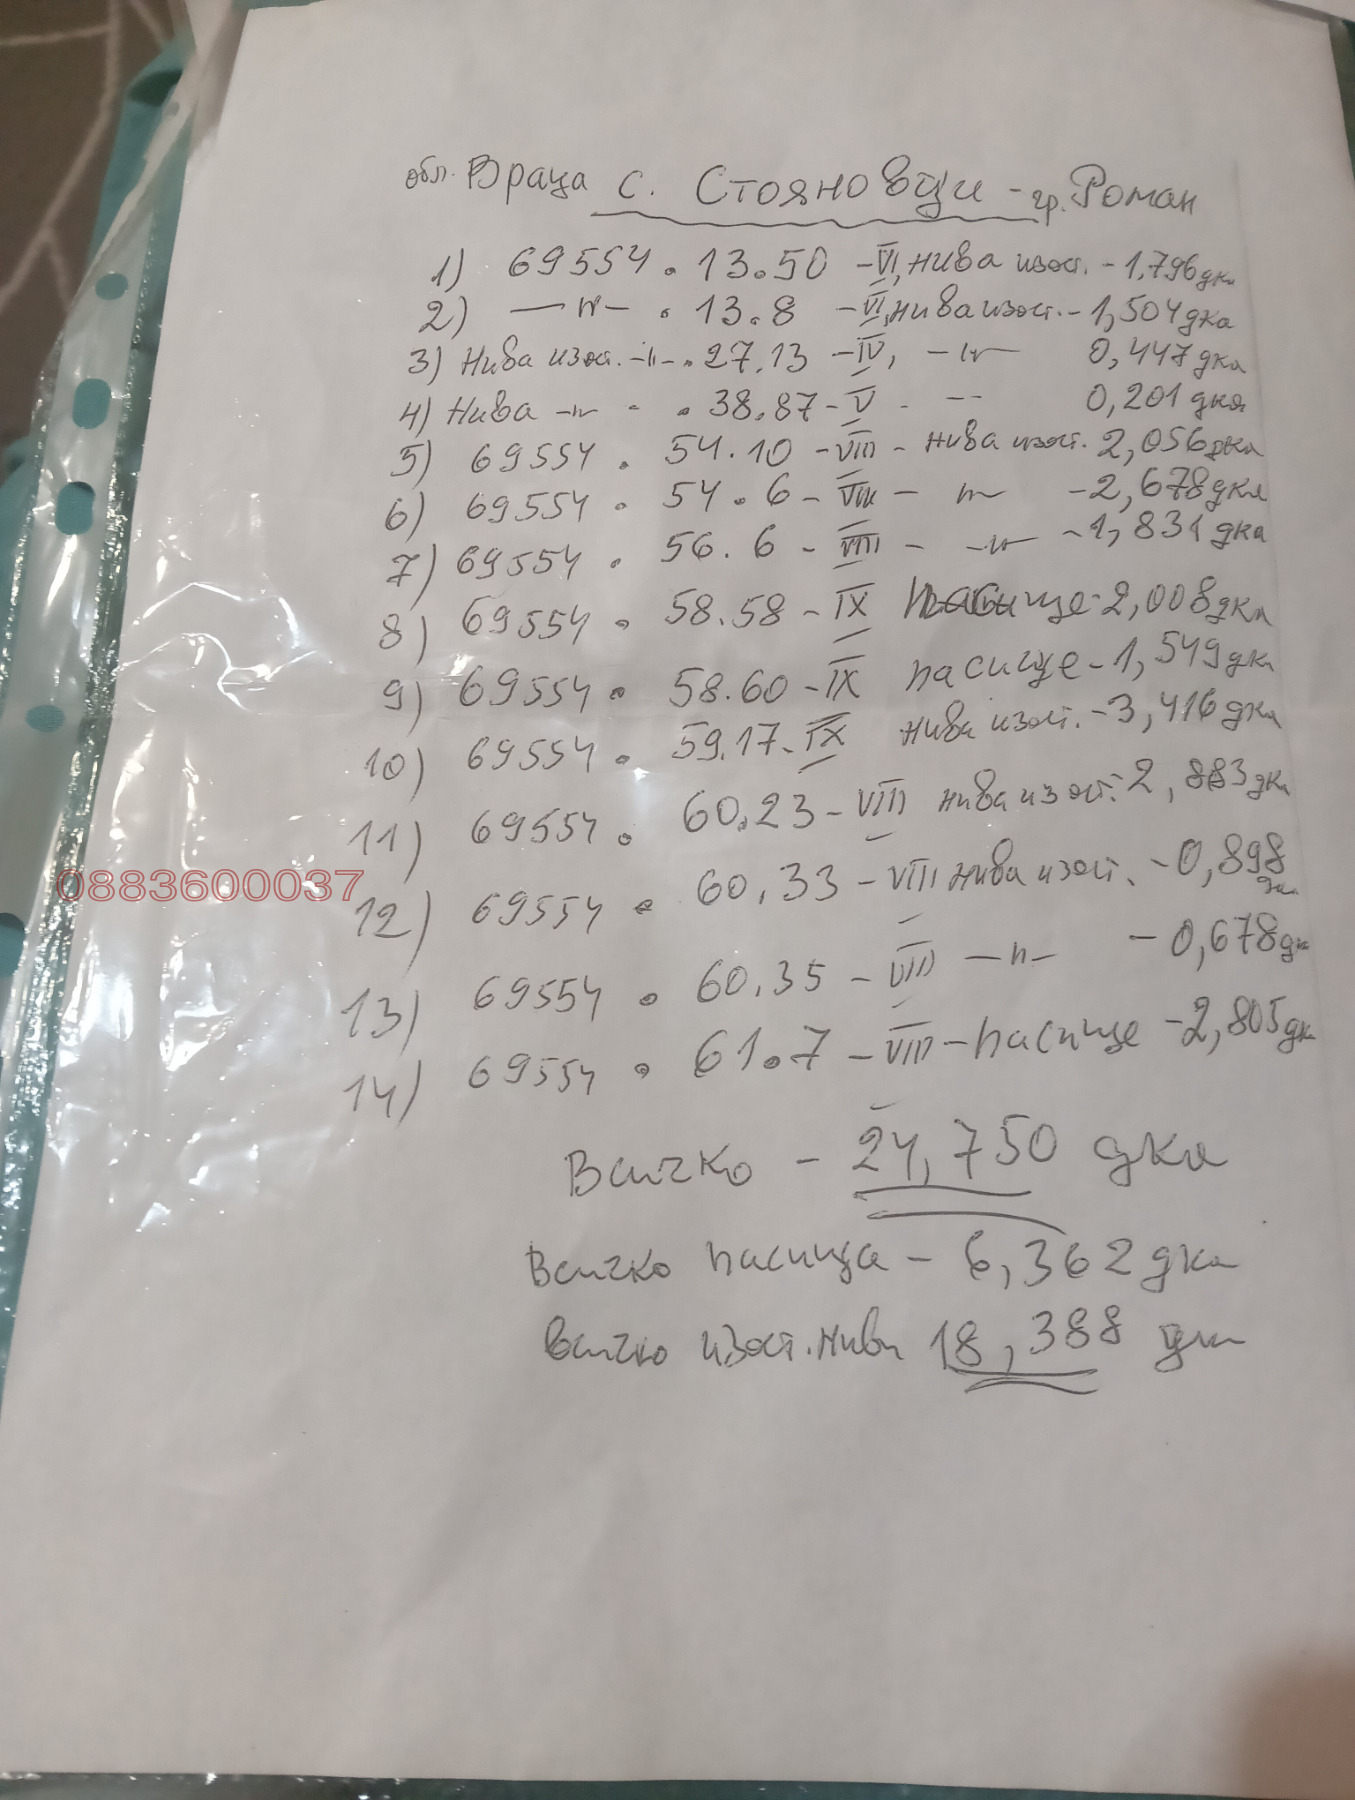 обл. Враца с. Стояновци - гр. Роман
1) 69554.13.50 - VI, нива изост. - 1,796 дка
2) —"— . 13.8 - VI, нива изост. - 1,504 дка
3) Нива изост. -"- . 27.13 - IV, -"- 0,447 дка
4) Нива -"- - . 38.87 - V - -- 0,201 дка
5) 69554 . 54.10 - VIII - нива изост. 2,056 дка
6) 69554 . 54.6 - VIII - -"- - 2,678 дка
7) 69554 . 56.6 - VIII - -"- - 1,831 дка
8) 69554 . 58.58 - IX пасище - 2,008 дка
9) 69554 . 58.60 - IX пасище - 1,549 дка
10) 69554 . 59.17 - IX нива изост. - 3,416 дка
11) 69554 . 60.23 - VIII нива изост. 2,883 дка
0883600037
12) 69554 . 60.33 - VIII нива изост. - 0,898 дка
13) 69554 . 60.35 - VIII -"- - 0,678 дка
14) 69554 . 61.7 - VIII - пасище - 2,805 дка
Всичко - 24,750 дка
Всичко пасища - 6,362 дка
Всичко изост. ниви 18,388 дка